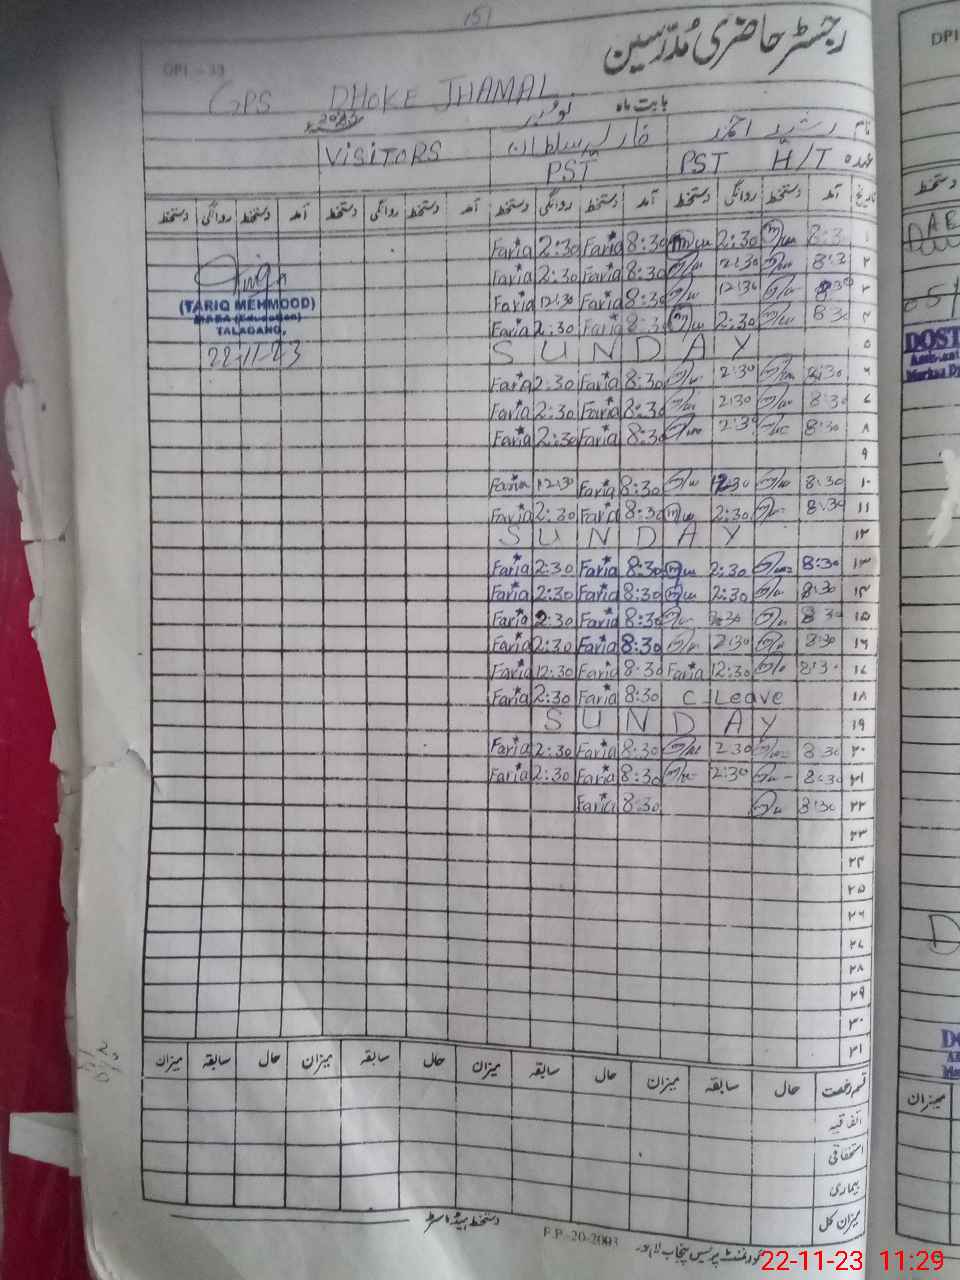 151
رجسٹر حاضری مدرسین
DPI - 33
GPS DHOKE JHAMAL
بابت ماہ نومبر
2023
نام رشید احمد فاریہ سلطان VISITORS
عہدہ PST H/T PST
تاریخ آمد دستخط روانگی دستخط آمد دستخط روانگی دستخط آمد دستخط روانگی دستخط آمد دستخط روانگی دستخط
Faria 2:30 Faria 8:30 2:30 8:30 ۱
Faria 2:30 Faria 8:30 2:30 8:30 ۲
Faria 12:30 Faria 8:30 12:30 8:30 ۳
Faria 2:30 Faria 8:30 2:30 8:30 ۴
S U N D A Y ۵
Faria 2:30 Faria 8:30 2:30 8:30 ۶
Faria 2:30 Faria 8:30 2:30 8:30 ۷
Faria 2:30 Faria 8:30 2:30 8:30 ۸
۹
Faria 12:30 Faria 8:30 12:30 8:30 ۱۰
Faria 2:30 Faria 8:30 2:30 8:30 ۱۱
S U N D A Y ۱۲
Faria 2:30 Faria 8:30 2:30 8:30 ۱۳
Faria 2:30 Faria 8:30 2:30 8:30 ۱۴
Faria 2:30 Faria 8:30 2:30 8:30 ۱۵
Faria 2:30 Faria 8:30 2:30 8:30 ۱۶
Faria 12:30 Faria 8:30 Faria 12:30 8:30 ۱۷
Faria 2:30 Faria 8:30 C-Leave ۱۸
S U N D A Y ۱۹
Faria 2:30 Faria 8:30 2:30 8:30 ۲۰
Faria 2:30 Faria 8:30 2:30 8:30 ۲۱
Faria 8:30 8:30 ۲۲
۲۳
۲۴
۲۵
۲۶
۲۷
۲۸
۲۹
۳۰
۳۱
(TARIQ MEHMOOD)
(Education)
TALAGANG,
22-11-23
قسم رخصت حال سابقہ میزان حال سابقہ میزان حال سابقہ میزان حال سابقہ میزان
اتفاقیہ
استحقاقی
بیماری
میزان کل
دستخط ہیڈ ماسٹر
P.P-20-2003
گورنمنٹ پریس پنجاب لاہور
DPI
دستخط
DOST
میزان
22-11-23 11:29